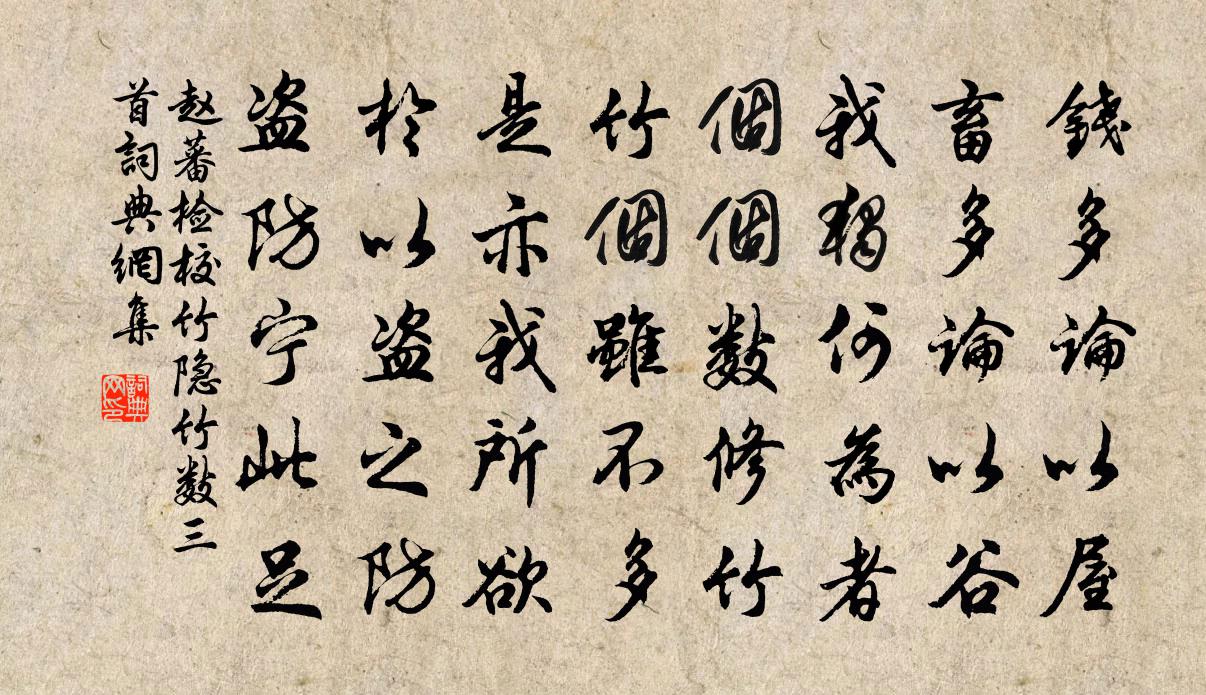 錢多論以屋
畜多論以谷
我獨何為者
個個數修竹
竹個個雖不多
是亦我所欲
於以盗之防
盗防宁此足
赵蕃检校竹隐竹数三
首詞典網集
詞典網印